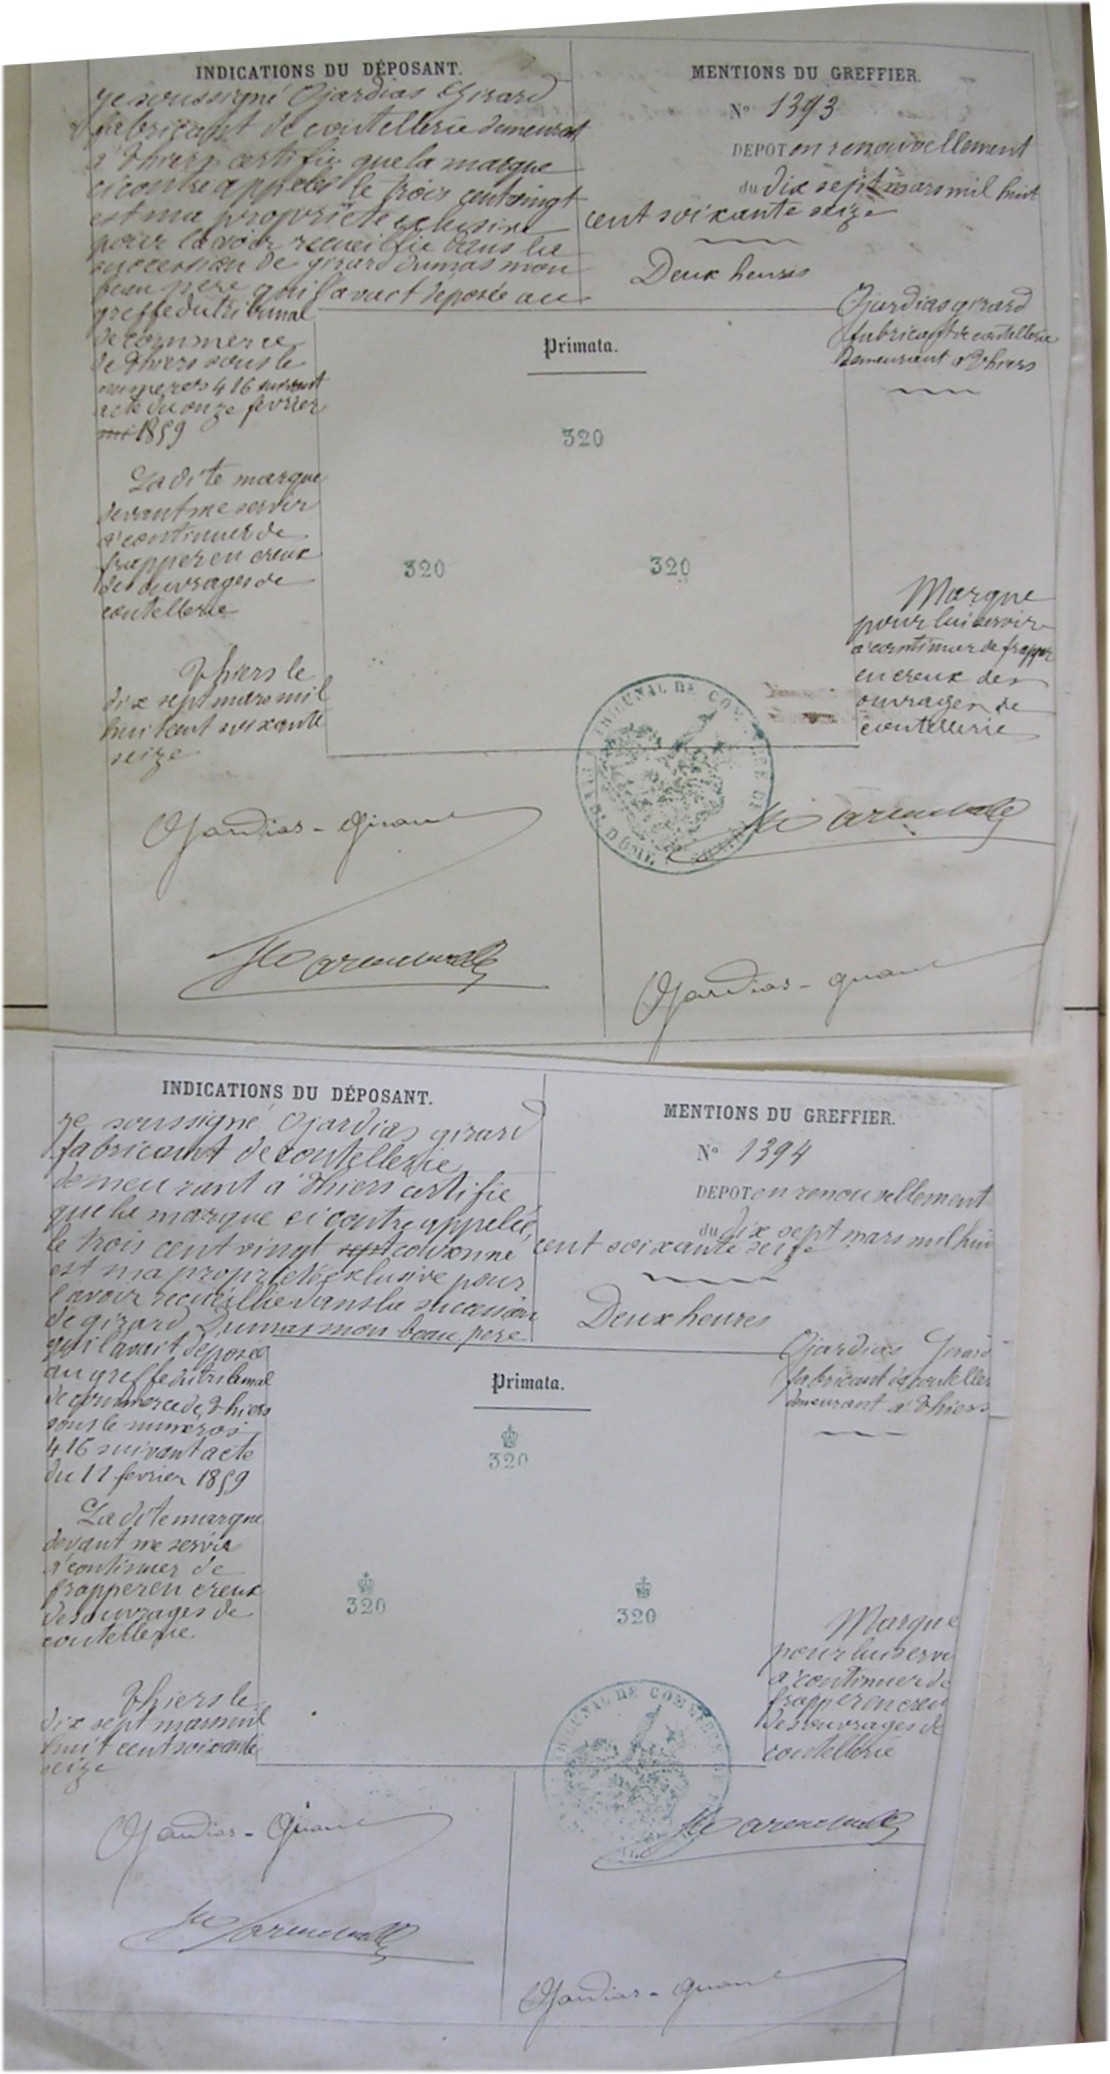 INDICATIONS DU DÉPOSANT.
je soussigné Ojardias Girard
fabricant de coutellerie demeurant
a thiers certifie que la marque
ci contre appelée le trois cent vingt
est ma propriété exclusive
pour lavoir recueillie dans la
succession de girard dumas mon
beau pere qui lavait déposée au
greffe du tribunal
de commerce
de thiers sous le
numeros 416 suivant
acte du onze fevrier
1859
La dite marque
devant me servir
a continuer de
frapper en creux
des ouvrages de
coutellerie
thiers le
dix sept mars mil
huit cent soixante
seize
Ojardias - Girard
MENTIONS DU GREFFIER.
No 1393
DEPOT en renouvellement
du dix sept mars mil huit
cent soixante seize
Deux heures
Ojardias girard
fabricant de coutellerie
demeurant a thiers
Primata.
320
320 320
Marque
pour lui servir
a continuer de frapper
en creux des
ouvrages de
coutellerie
TRIBUNAL DE COMMERCE DE
Ojardias - Girard
INDICATIONS DU DÉPOSANT.
je soussigné Ojardias girard
fabricant de coutellerie
demeurant a thiers certifie
que la marque ci contre appelée
le trois cent vingt sept couronne
est ma propriété exclusive pour
l'avoir recueillie dans la succession
de girard Dumas mon beau pere
qu'il avait déposée
au greffe du tribunal
de commerce de thiers
sous le numeros
416 suivant acte
du 11 fevrier 1859
La dite marque
devant me servir
a continuer de
frapper en creux
des ouvrages de
coutellerie
thiers le
dix sept mars mil
huit cent soixante
seize
Ojardias - Girard
MENTIONS DU GREFFIER.
No 1394
DEPOT en renouvellement
du dix sept mars mil huit
cent soixante seize
Deux heures
Ojardias Girard
fabricant de coutellerie
demeurant a thiers
Primata.
320
320 320
Marque
pour lui servir
a continuer de
frapper en creux
des ouvrages de
coutellerie
TRIBUNAL DE COMMERCE DE
Ojardias - Girard